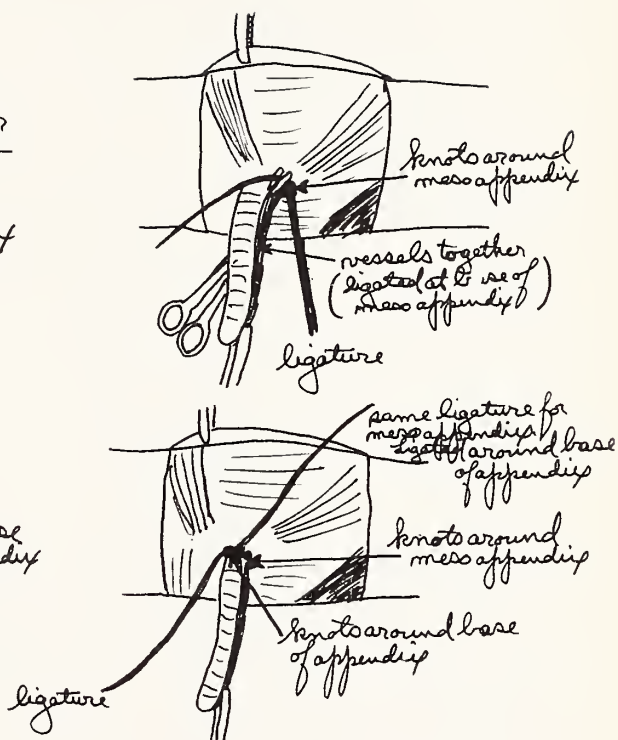 knots around
meso appendix
vessels together
(ligated at b se of
meso appendix)
ligature
same ligature for
meso appendix
ligated around base
of appendix
se
dix
knots around
meso appendix
knots around base
of appendix
ligature